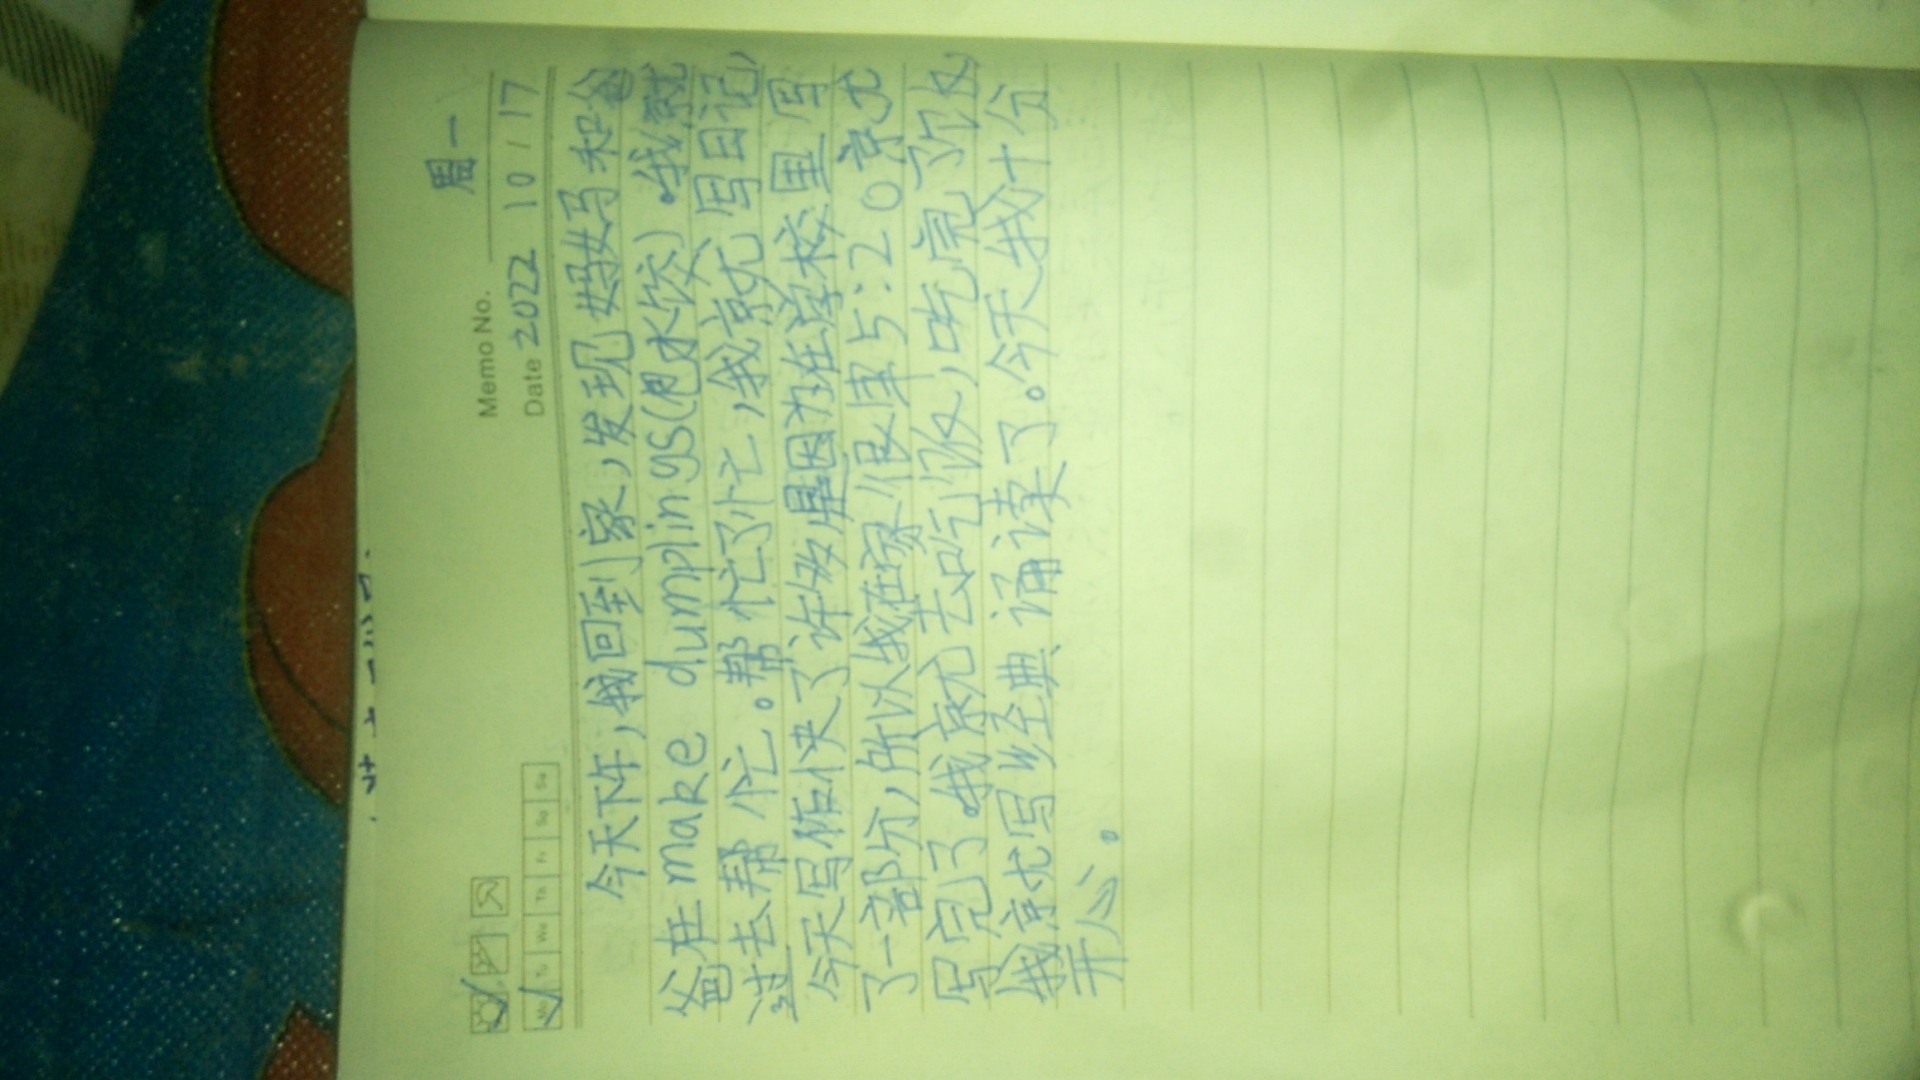 周一
Memo No.
Mo Tu We Th Fr Sa Su
Date 2022 10 / 17
今天下午,我回到家,发现妈妈和爸
爸在make dumplings(包水饺)。我就
过去帮忙。帮忙了忙,我就写日记,
今天写作快了许多是因为在学校里写
了一部分,所以我在家很早5:20就
写完了。我就去吃饭,吃完了饭
我就写经典诵读了。今天我十分
开心。